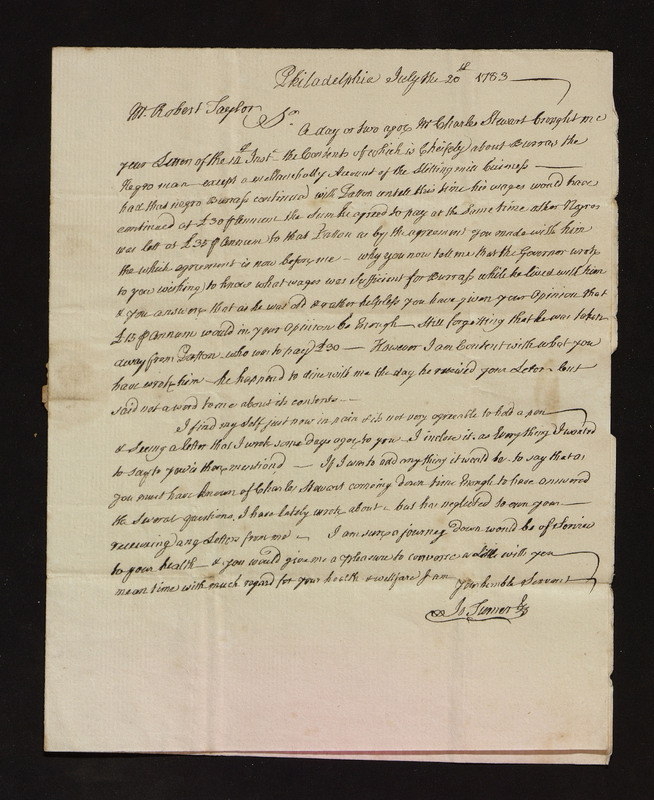 Philadelphia July the 20th 1783
Mr Robert Taylor Sr
A day or two agoe Mr Charles Stewart brought me
your Letter of the 12th Inst the Contents of which is Cheifely about Durrass the
Negro man except a mellanchally Account of the Slitting mill Buisness
had this negro Durrass continued with Patton untill this time his wages would have
continued at £30 P Annum the Sum he agreed to pay at the same time other Negros
was lett at £35 P Annum to that Patton as by the agreement you made with him
the which agreement is now before me - why you now tell me that the Governor wrote
to you wishing to know what wages was Sufficient for Durrass while he lived with him
& you answering that as he was old & rather helpless you have given your Opinion that
£15 P Annum would in your Opinion be Enough - still forgetting that he was taken
away from Patton who was to pay £30 - However I am Content with what you
have wrote him - he happned to dine with me the day he received your Letter but
said not a word to me about its contents -
I find my self just now in pain & it is not very agreeable to hold a pen
& seeing a letter that I wrote some days agoe to you I inclose it, as Every thing I wanted
to say to you is then mentiond - If I was to add any thing it would be to say that as
you must have known of Charles Stewart comeing down time Enough to have answered
the several questions I have lately wrote about & but has neglected to own your
receiveing any Letters from me - I am sure a journey down would be of service
to your health - & you would give me a pleasure to converse a Little with you
mean time with much regard for your health & wellfare I am your humble Servant
Jos Turner